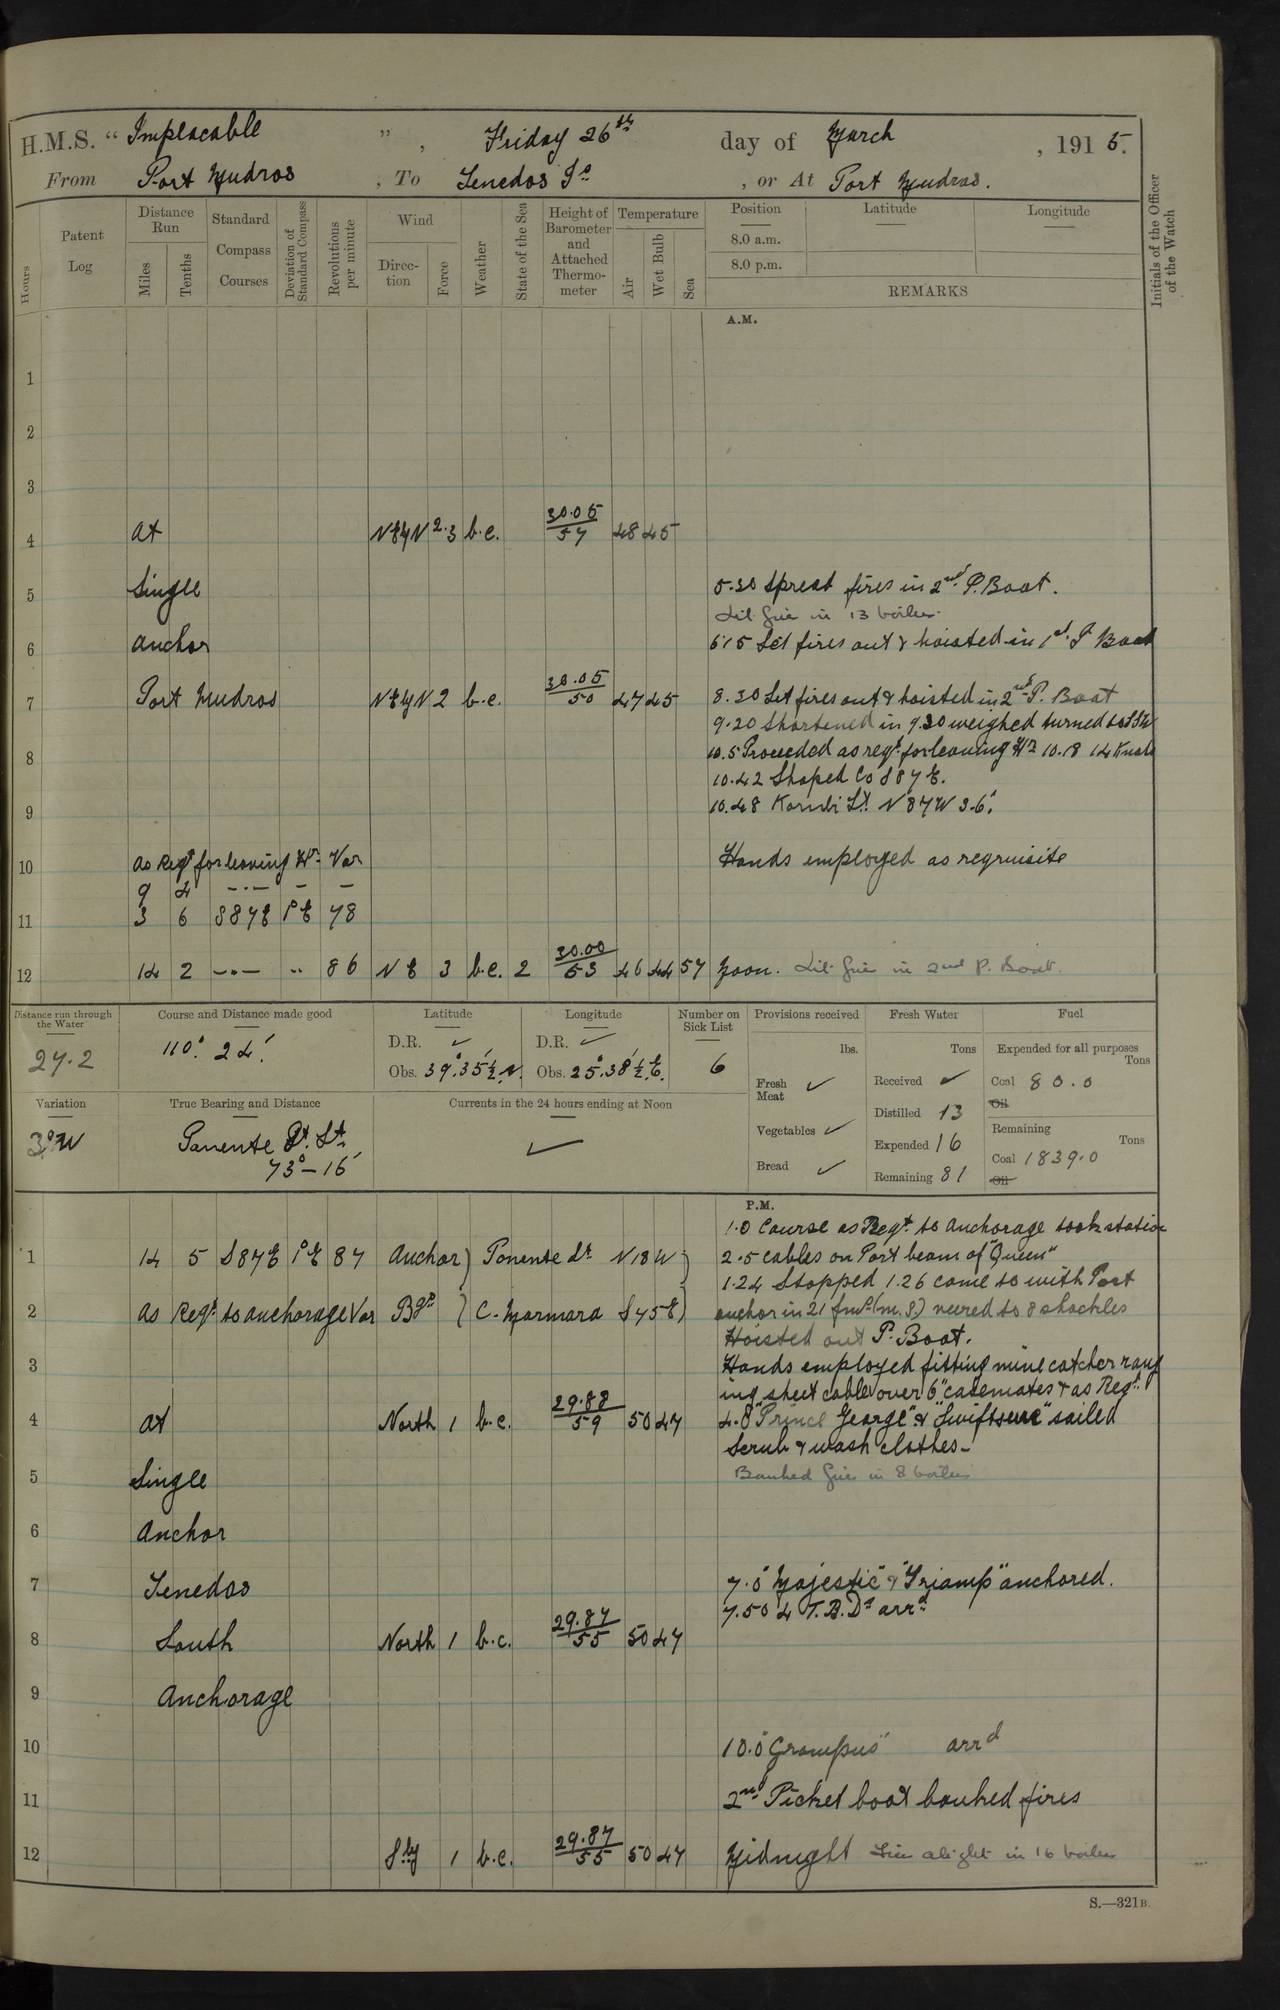 H.M.S. "Implacable", Friday 26th day of March, 1915.
From Port Mudros, To Tenedos Id, or At Port Mudros.
Hours
Patent Log
Distance Run
Miles Tenths
Standard Compass Courses
Deviation of Standard Compass
Revolutions per minute
Wind
Direction Force
Weather
State of the Sea
Height of Barometer and Attached Thermometer
Temperature
Air Wet Bulb Sea
Position Latitude Longitude
8.0 a.m.
8.0 p.m.
REMARKS
Initials of the Officer of the Watch
A.M.
1
2
3
4 At NEbyN 2.3 b.c. 30.05/57 48 45
5 Single 5.30 Spread fires in 2nd P. Boat.
Lit fires in 13 boilers
6 anchor 6.15 Let fires out & hoisted in 1st P Boat
7 Port Mudros NEbyN 2 b.c. 30.05/50 47 45 8.30 Let fires out & hoisted in 2nd P. Boat
9.20 Shortened in 9.30 weighed turned to SSW
8 10.5 Proceeded as reqt for leaving Hr 10.18 14 Knots
10.42 Shaped Co S87E.
9 10.48 Kombi Lt N87W 3.6'
10 As Reqt for leaving Hr Var Hands employed as requisite
9 4 -.- - -
11 3 6 S87E 1°E 78
12 14 2 -.- .. 86 NE 3 b.c. 2 30.00/53 46 44 57 Noon. Lit fires in 2nd P. Boat.
Distance run through the Water
27.2
Course and Distance made good
110° 24'
Latitude
D.R. ✓
Obs. 39°.35½'.N.
Longitude
D.R. ✓
Obs. 25°.38½'.E.
Number on Sick List
6
Provisions received
lbs.
Fresh Meat ✓
Vegetables ✓
Bread ✓
Fresh Water
Tons
Received ✓
Distilled 13
Expended 16
Remaining 81
Fuel
Expended for all purposes
Tons
Coal 80.0
Oil
Remaining
Tons
Coal 1839.0
Oil
Variation
3°W
True Bearing and Distance
Ponente Pt. Lt.
73° – 16'
Currents in the 24 hours ending at Noon
✓
P.M.
1.0 Course as Reqt to anchorage took station
1 14 5 S87E 1°E 87 Anchor } Ponente Lt N18W } 2.5 cables on Port beam of "Queen"
1.24 Stopped 1.26 came to with Port
2 as Reqt to anchorage Var Bgs { C. Marmara S45E } anchor in 21 fms (m.S.) veered to 8 shackles
Hoisted out P. Boat.
3 Hands employed fitting mine catcher rang
ing sheet cable over 6" casemates & as Reqt.
4 At North 1 b.c. 29.88/59 50 47 4.0 "Prince George" & "Swiftsure" sailed
Scrub & wash clothes –
5 Single Banked fires in 8 boilers
6 Anchor
7 Tenedos 7.0 "Majestic" & "Triumph" anchored.
7.50 4 T.B.Ds arrd
8 South North 1 b.c. 29.87/55 50 47
9 Anchorage
10 10.0 "Grampus" arrd
11 2nd Picket boat banked fires
12 Sly 1 b.c. 29.87/55 50 47 Midnight Fires alight in 16 boilers
S.—321B.